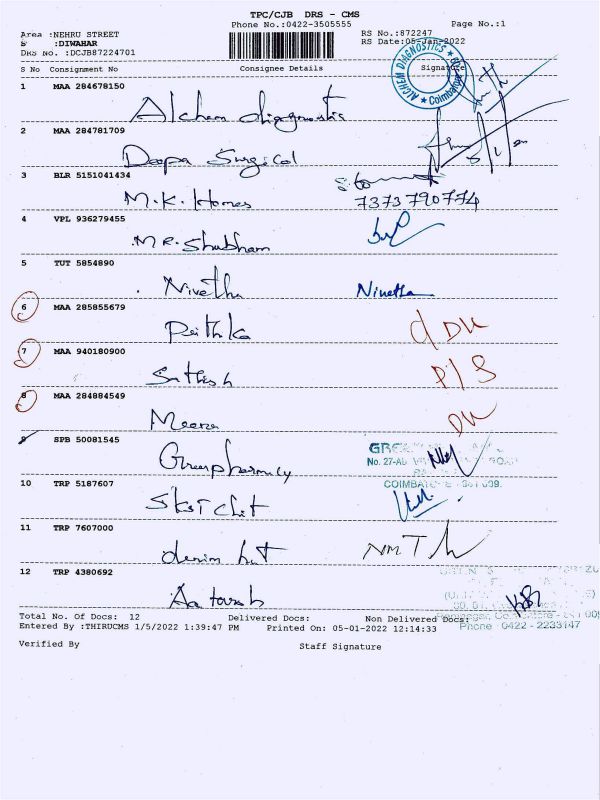 TPC/CJB DRS - CMS
Phone No.:0422-3505555 Page No.:1
Area :NEHRU STREET RS No.:872247
S :DIWAHAR RS Date:05-Jan-2022
DRS No. :DCJB87224701
S No Consignment No Consignee Details Signature
ALCHEM DIAGNOSTICS * Coimbatore
1 MAA 284678150
Alchem diagnostis
2 MAA 284781709
Deepa Surgical
3 BLR 5151041434
M.K. Homes 7373790774
4 VPL 936279455
MR. Shubham
5 TUT 5854890
Nivetha Nivetha
6 MAA 285855679
Prithika d DK
7 MAA 940180900
Sathish P/S
8 MAA 284884549
Meena DK
9 SPB 50081545
Greenpharmacy
No. 27-A
COIMBATORE
10 TRP 5187607
Sksi Chit
11 TRP 7607000
denim hut
12 TRP 4380692
Aatorsh
Total No. Of Docs: 12 Delivered Docs: Non Delivered Docs:
Phone 0422 - 2233147
Entered By :THIRUCMS 1/5/2022 1:39:47 PM Printed On: 05-01-2022 12:14:33
Verified By Staff Signature